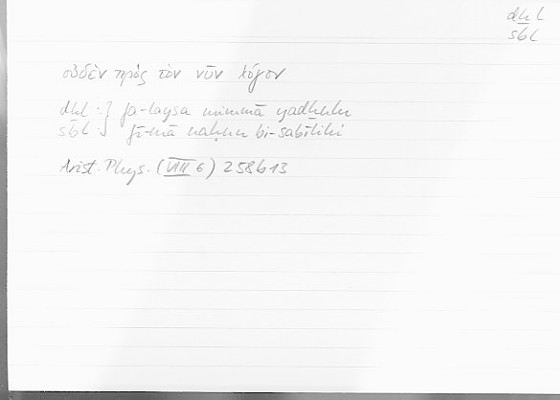 dḫl
sbl
οὐδὲν πρὸς τὸν νῦν λόγον
dḫl :} fa-laysa mimmā yadḫulu
sbl :} fī-mā naḥnu bi-sabīlihi
Arist. Phys. (VIII 6) 258b13